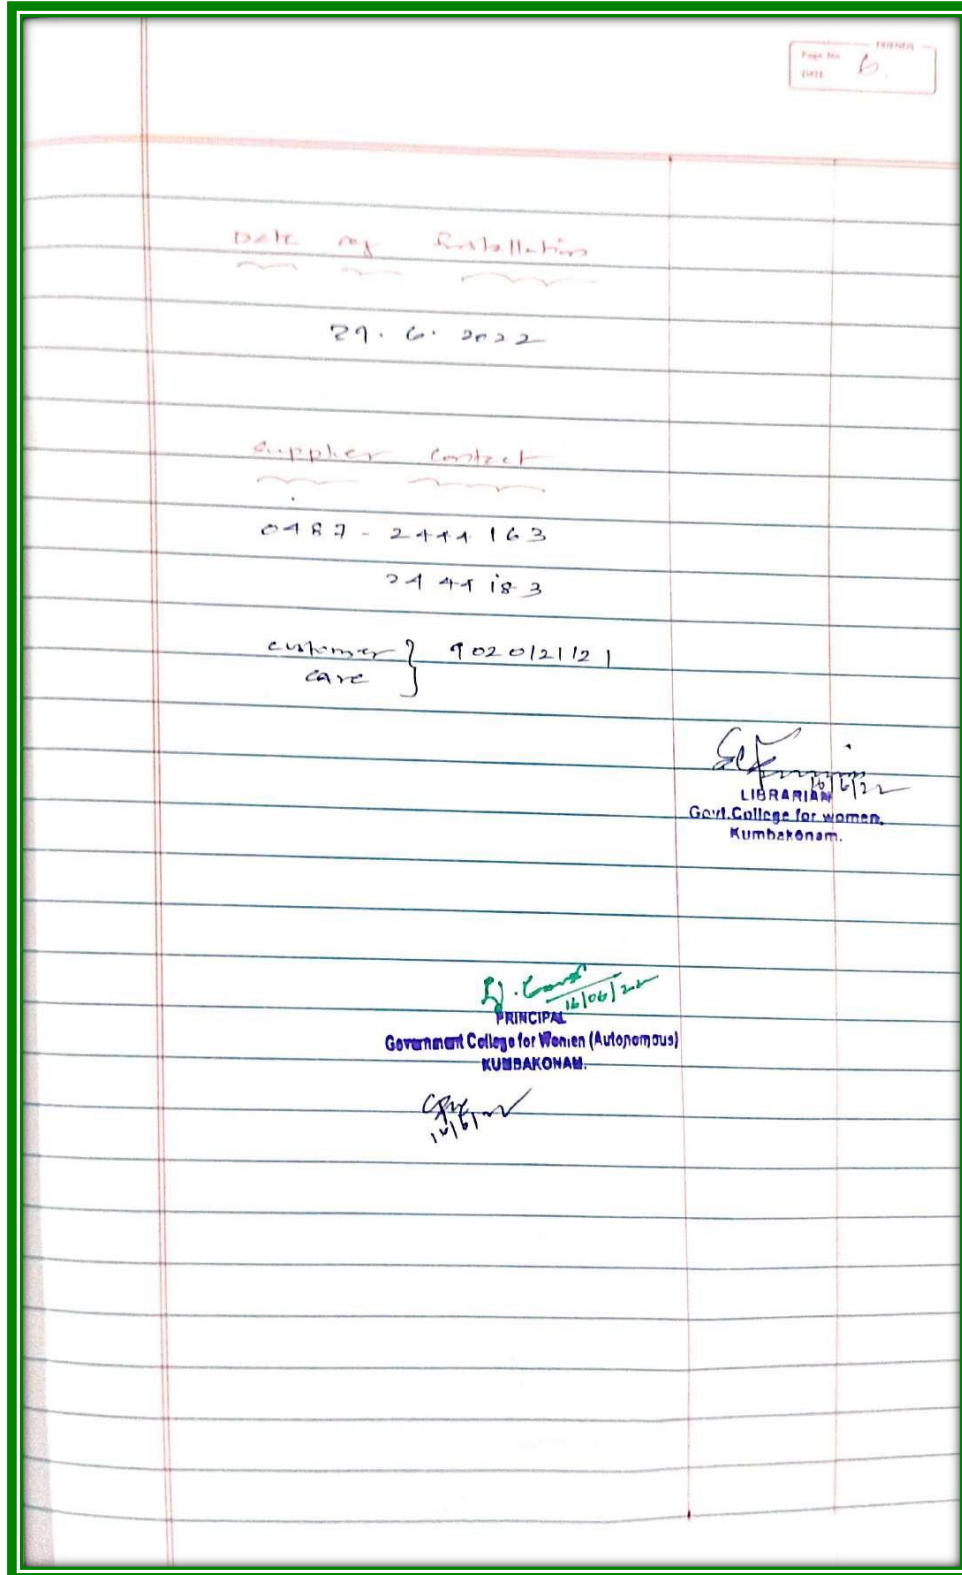 FRIENDS
Page No. 6.
DATE
Date of Installation
29. 6. 2022
Supplier Contact
0487 - 2444 163
2444 183
customer care } 9020121121
16/6/22
LIBRARIAN
Govt.College for women,
Kumbakonam.
16/06/22
PRINCIPAL
Government College for Women (Autonomous)
KUMBAKONAM.